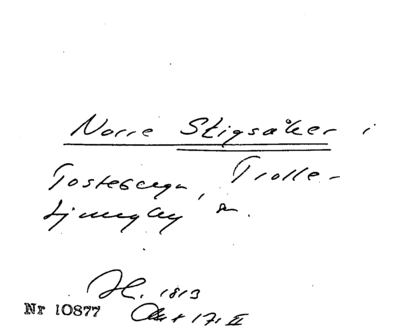 Norre Stigsåker i
Tosteberga, Trolle-
Ljungby sn.
H. 1813
Akt 171 II
Nr 10877